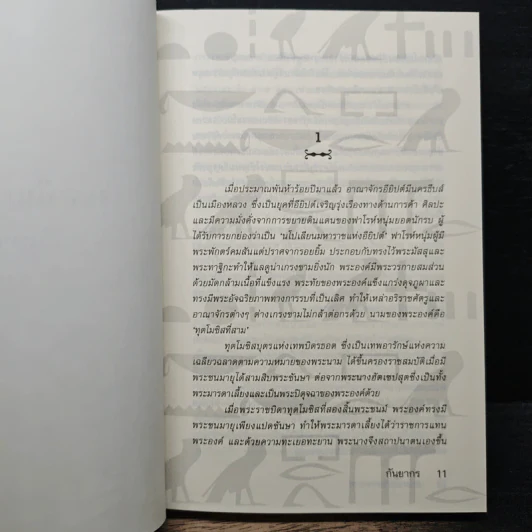 1
เมื่อประมาณพันห้าร้อยปีมาแล้ว อาณาจักรอียิปต์มีนครธีบส์
เป็นเมืองหลวง ซึ่งเป็นยุคที่อียิปต์เจริญรุ่งเรืองทางด้านการค้า ศิลปะ
และมีความมั่งคั่งจากการขยายดินแดนของฟาโรห์หนุ่มยอดนักรบ ผู้
ได้รับการยกย่องว่าเป็น "นโปเลียนมหาราชแห่งอียิปต์" ฟาโรห์หนุ่มผู้มี
พระพักตร์คมสันแต่ปราศจากรอยยิ้ม ประกอบกับทรงไว้พระมัสสุและ
พระทาฐิกะทำให้แลดูน่าเกรงขามยิ่งนัก พระองค์มีพระวรกายสมส่วน
ด้วยมัดกล้ามเนื้อที่แข็งแรง พระทัยของพระองค์แข็งแกร่งดุจภูผาและ
ทรงมีพระอัจฉริยภาพทางการรบที่เป็นเลิศ ทำให้เหล่าอริราชศัตรูและ
อาณาจักรต่างๆ ต่างเกรงขามไม่กล้าต่อกรด้วย นามของพระองค์คือ
'ทุตโมซิสที่สาม'
ทุตโมซิสบุตรแห่งเทพบิดรธอต ซึ่งเป็นเทพอารักษ์แห่งความ
เฉลียวฉลาดตามความหมายของพระนาม ได้ขึ้นครองราชสมบัติเมื่อมี
พระชนมายุได้สามสิบพระชันษา ต่อจากพระนางฮัตเชปสุตซึ่งเป็นทั้ง
พระมารดาเลี้ยงและเป็นพระปิตุจฉาของพระองค์ด้วย
เมื่อพระราชบิดาทุตโมซิสที่สองสิ้นพระชนม์ พระองค์ทรงมี
พระชนมายุเพียงแปดชันษา ทำให้พระมารดาเลี้ยงได้ว่าราชการแทน
พระองค์ และด้วยความทะเยอทะยาน พระนางจึงสถาปนาตนเองขึ้น
กันยากร 11